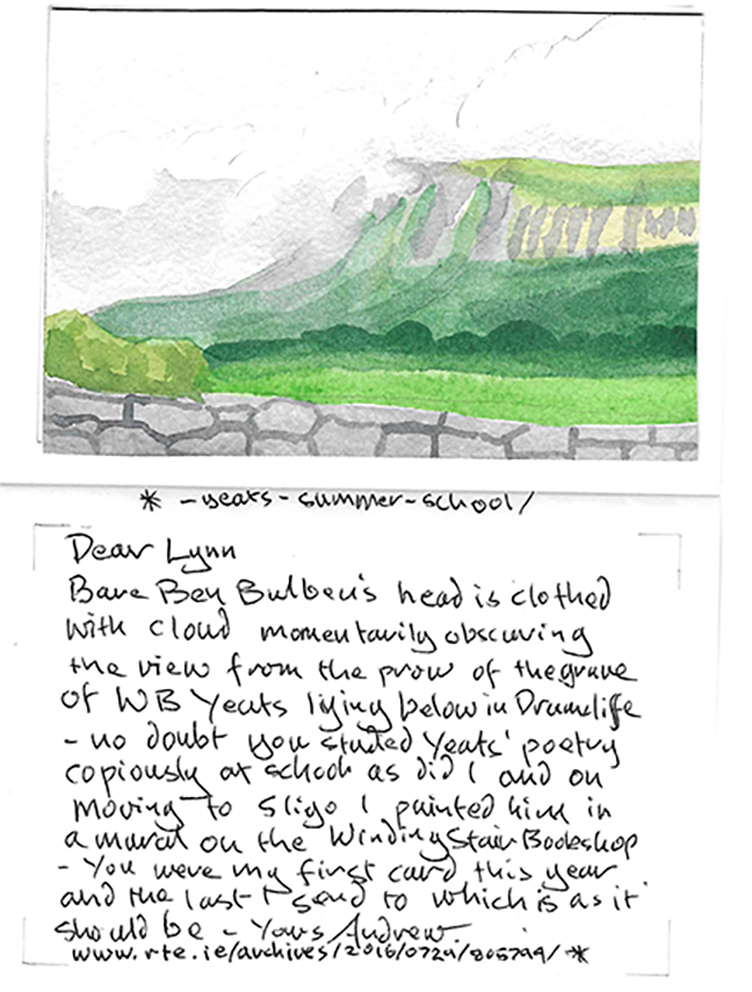 * -yeats-summer-school/
Dear Lynn
Bare Ben Bulben's head is clothed
with cloud momentarily obscuring
the view from the prow of the grave
of WB Yeats lying below in Drumcliffe
- no doubt you studied Yeats' poetry
copiously at school as did I and on
moving to Sligo I painted him in
a mural on the Winding Stair Bookshop
- You were my first card this year
and the last I send to which is as it
should be - Yours Andrew.
www.rte.ie/archives/2016/0729/805799/ *